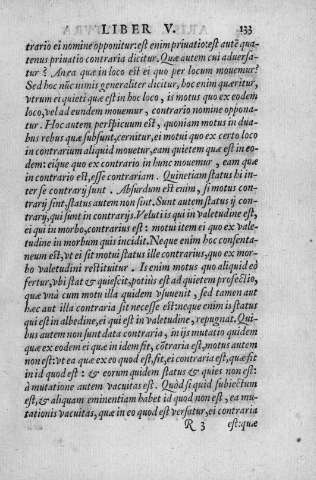 LIBER V. 133
trario ei nomine opponitur: est enim priuatio: est autē qua
tenus priuatio contraria dicitur. Quæ autem cui aduersa
tur? An ea quæ in loco est ei quo per locum mouemur?
Sed hoc nūc nimis generaliter dicitur, hoc enim quæritur,
vtrum ei quieti quæ est in hoc loco, is motus quo ex eodem
loco, vel ad eundem mouemur, contrario nomine oppona-
tur. Hoc autem perspicuum est, quoniam motus in dua-
bus rebus quæ subsunt, cernitur, ei motui quo ex certo loco
in contrarium aliquid mouetur, eam quietem quæ est in eo-
dem: eique quo ex contrario in hunc mouemur, eam quæ
in contrario est, esse contrariam. Quinetiam status hi in-
ter se contrarij sunt. Absurdum est enim, si motus con-
trarij sint, status autem non sint. Sunt autem status ij con-
trarij, qui sunt in contrarijs. Veluti is qui in valetudine est,
ei qui in morbo, contrarius est: motui item ei quo ex vale-
tudine in morbum quis incidit. Neque enim hoc consenta-
neum est, vt ei sit motui status ille contrarius, quo ex mor-
bo valetudini restituitur. Is enim motus quo aliquid eò
fertur, vbi stat & quiescit, potius est ad quietem profectio,
quæ vnà cum motu illa quidem vsuuenit, sed tamen aut
hæc aut illa contraria sit necesse est: neque enim is status
qui est in albedine, ei qui est in valetudine, repugnat. Qui-
bus autem non sunt data contraria, in ijs mutatio quidem
quæ ex eodem ei quæ in idem fit, cōtraria est, motus autem
non est: vt ea quæ ex eo quod est, fit, ei contraria est, quæ fit
in id quod est: & eorum quidem status & quies non est:
à mutatione autem vacuitas est. Quòd si quid subiectum
est, & aliquam eminentiam habet id quod non est, ea mu-
tationis vacuitas, quæ in eo quod est versatur, ei contraria
R 3 est: quæ